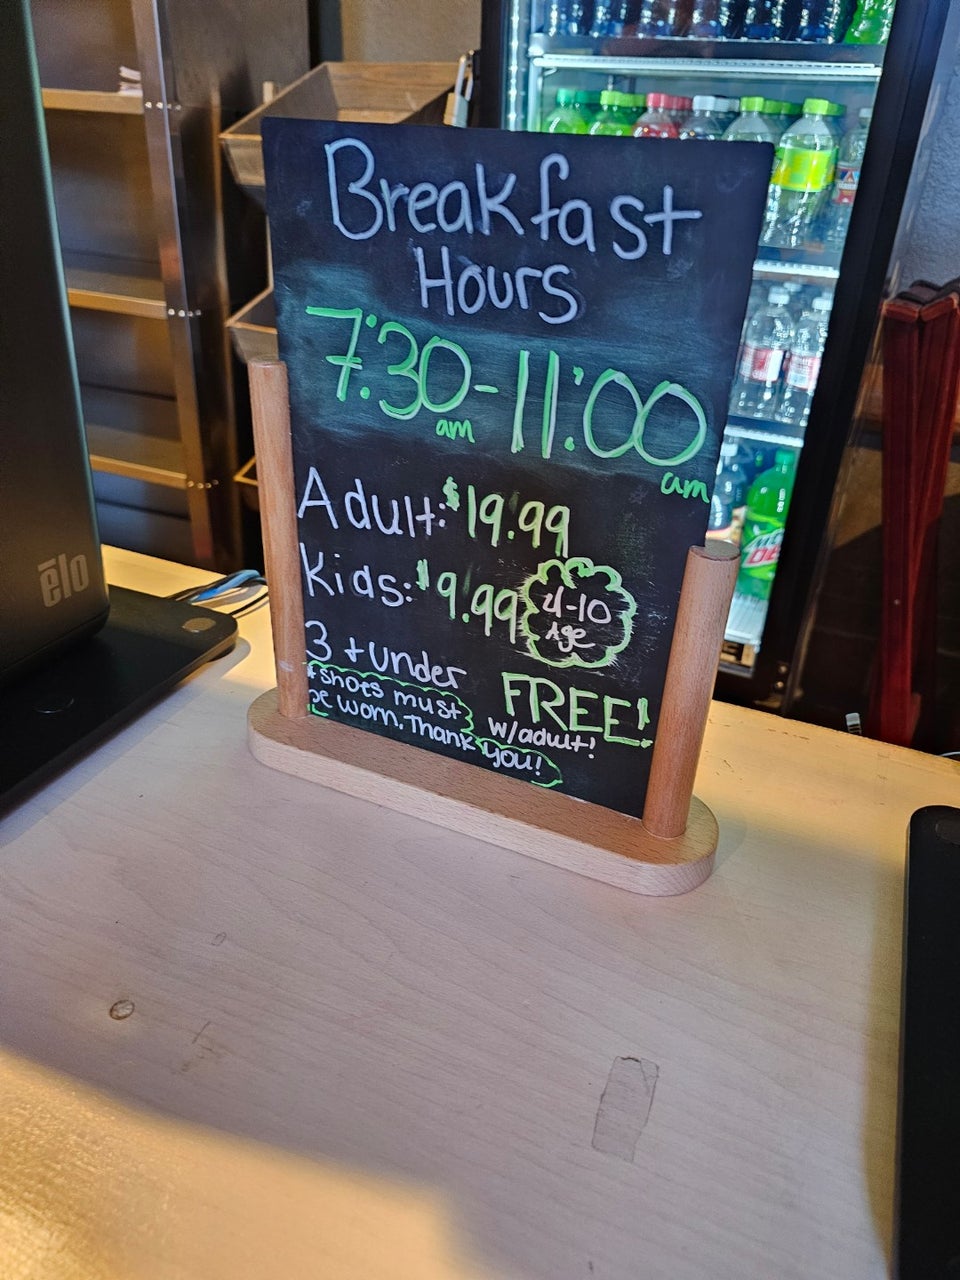 Breakfast
Hours
7:30 - 11:00
am am
Adult: $19.99
Kids: $9.99 4-10
Age
3 + under FREE!
w/adult!
* Shoes must
be worn. Thank you!
ēlo